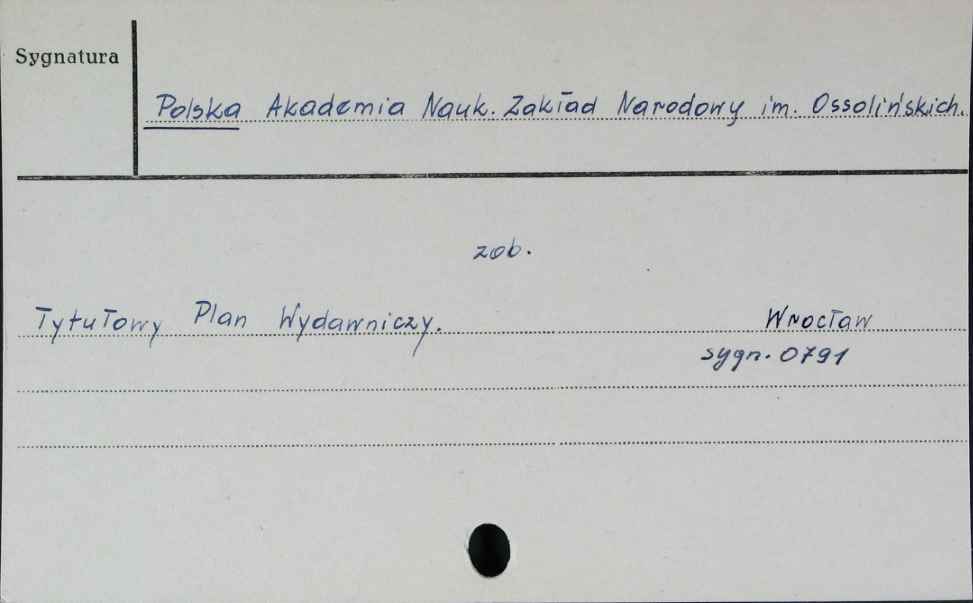 Sygnatura
Polska Akademia Nauk. Zakład Narodowy im. Ossolińskich.
zob.
Tytułowy Plan Wydawniczy. Wrocław
sygn. 0791